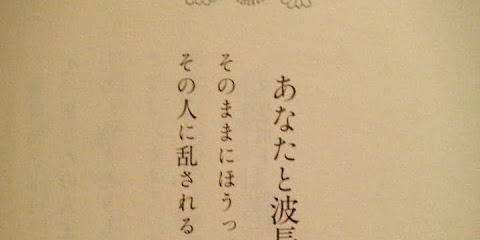 あなたと波長
そのままにほうっ
その人に乱される